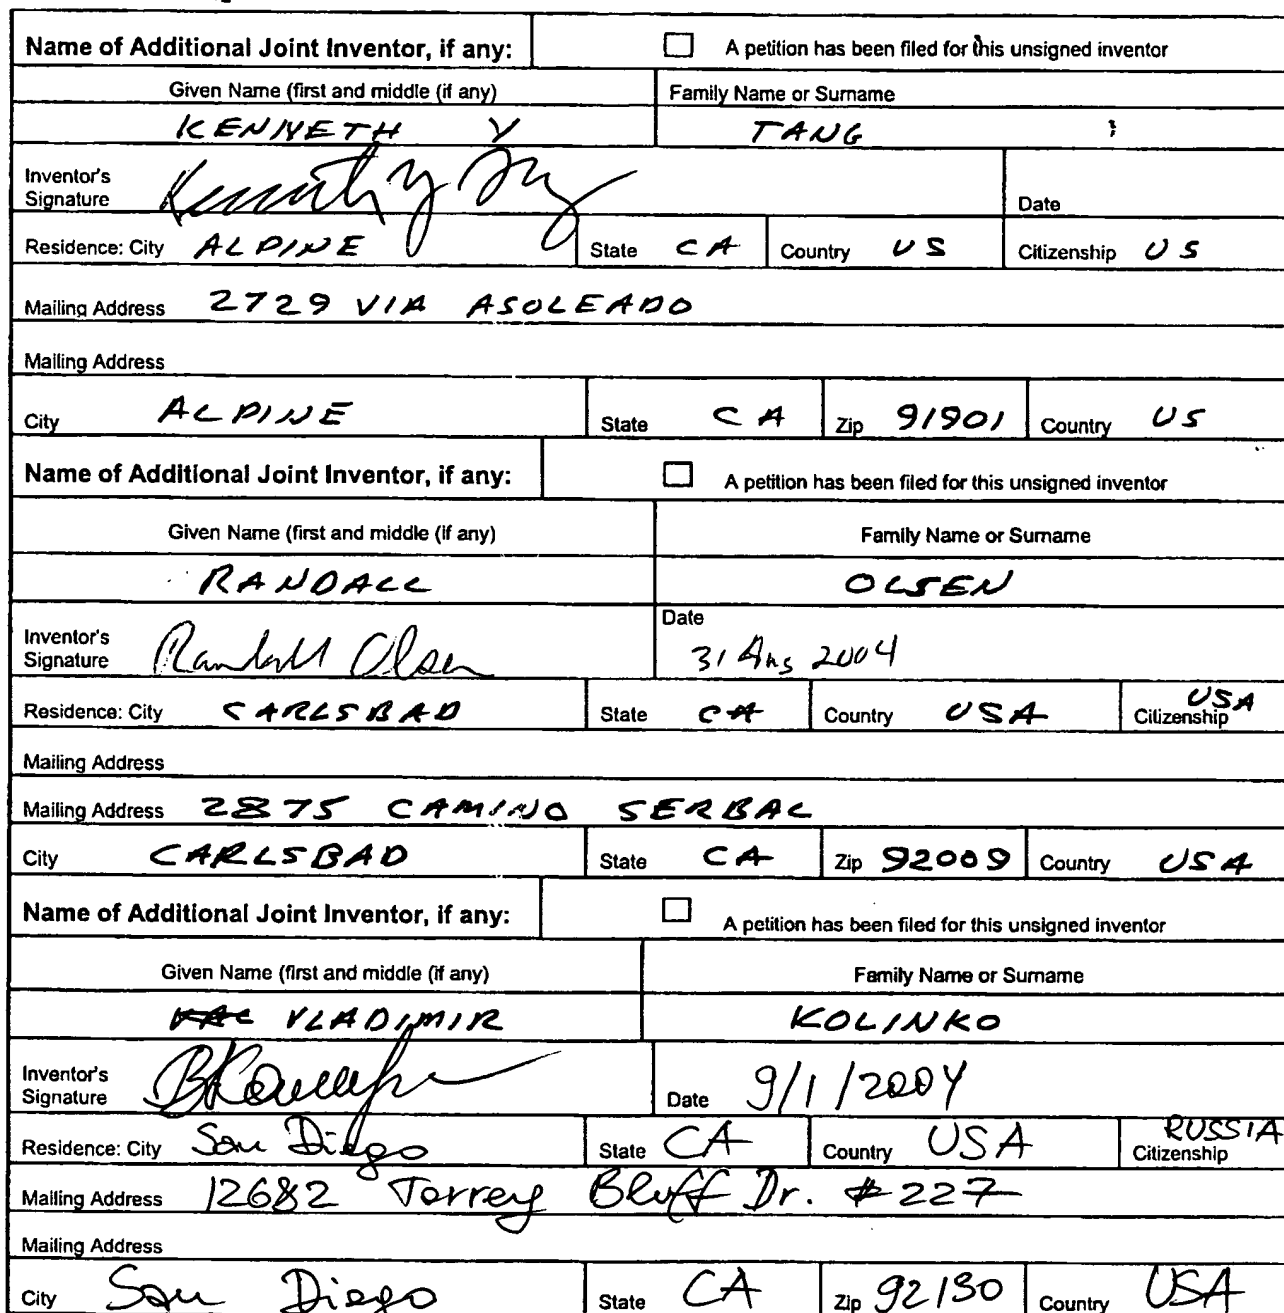 Name of Additional Joint Inventor, if any: A petition has been filed for this unsigned inventor
Given Name (first and middle (if any) Family Name or Surname
KENNETH Y TANG
Inventor's
Signature Kenneth Y Tang Date
Residence: City ALPINE State CA Country US Citizenship US
Mailing Address 2729 VIA ASOLEADO
Mailing Address
City ALPINE State CA Zip 91901 Country US
Name of Additional Joint Inventor, if any: A petition has been filed for this unsigned inventor
Given Name (first and middle (if any) Family Name or Surname
RANDALL OLSEN
Inventor's
Signature Randall Olsen Date 31 Aug 2004
Residence: City CARLSBAD State CA Country USA Citizenship USA
Mailing Address
Mailing Address 2875 CAMINO SERBAL
City CARLSBAD State CA Zip 92009 Country USA
Name of Additional Joint Inventor, if any: A petition has been filed for this unsigned inventor
Given Name (first and middle (if any) Family Name or Surname
VLADIMIR KOLINKO
Inventor's
Signature Date 9/1/2004
Residence: City San Diego State CA Country USA Citizenship RUSSIA
Mailing Address 12682 Torrey Bluff Dr. #227
Mailing Address
City San Diego State CA Zip 92130 Country USA